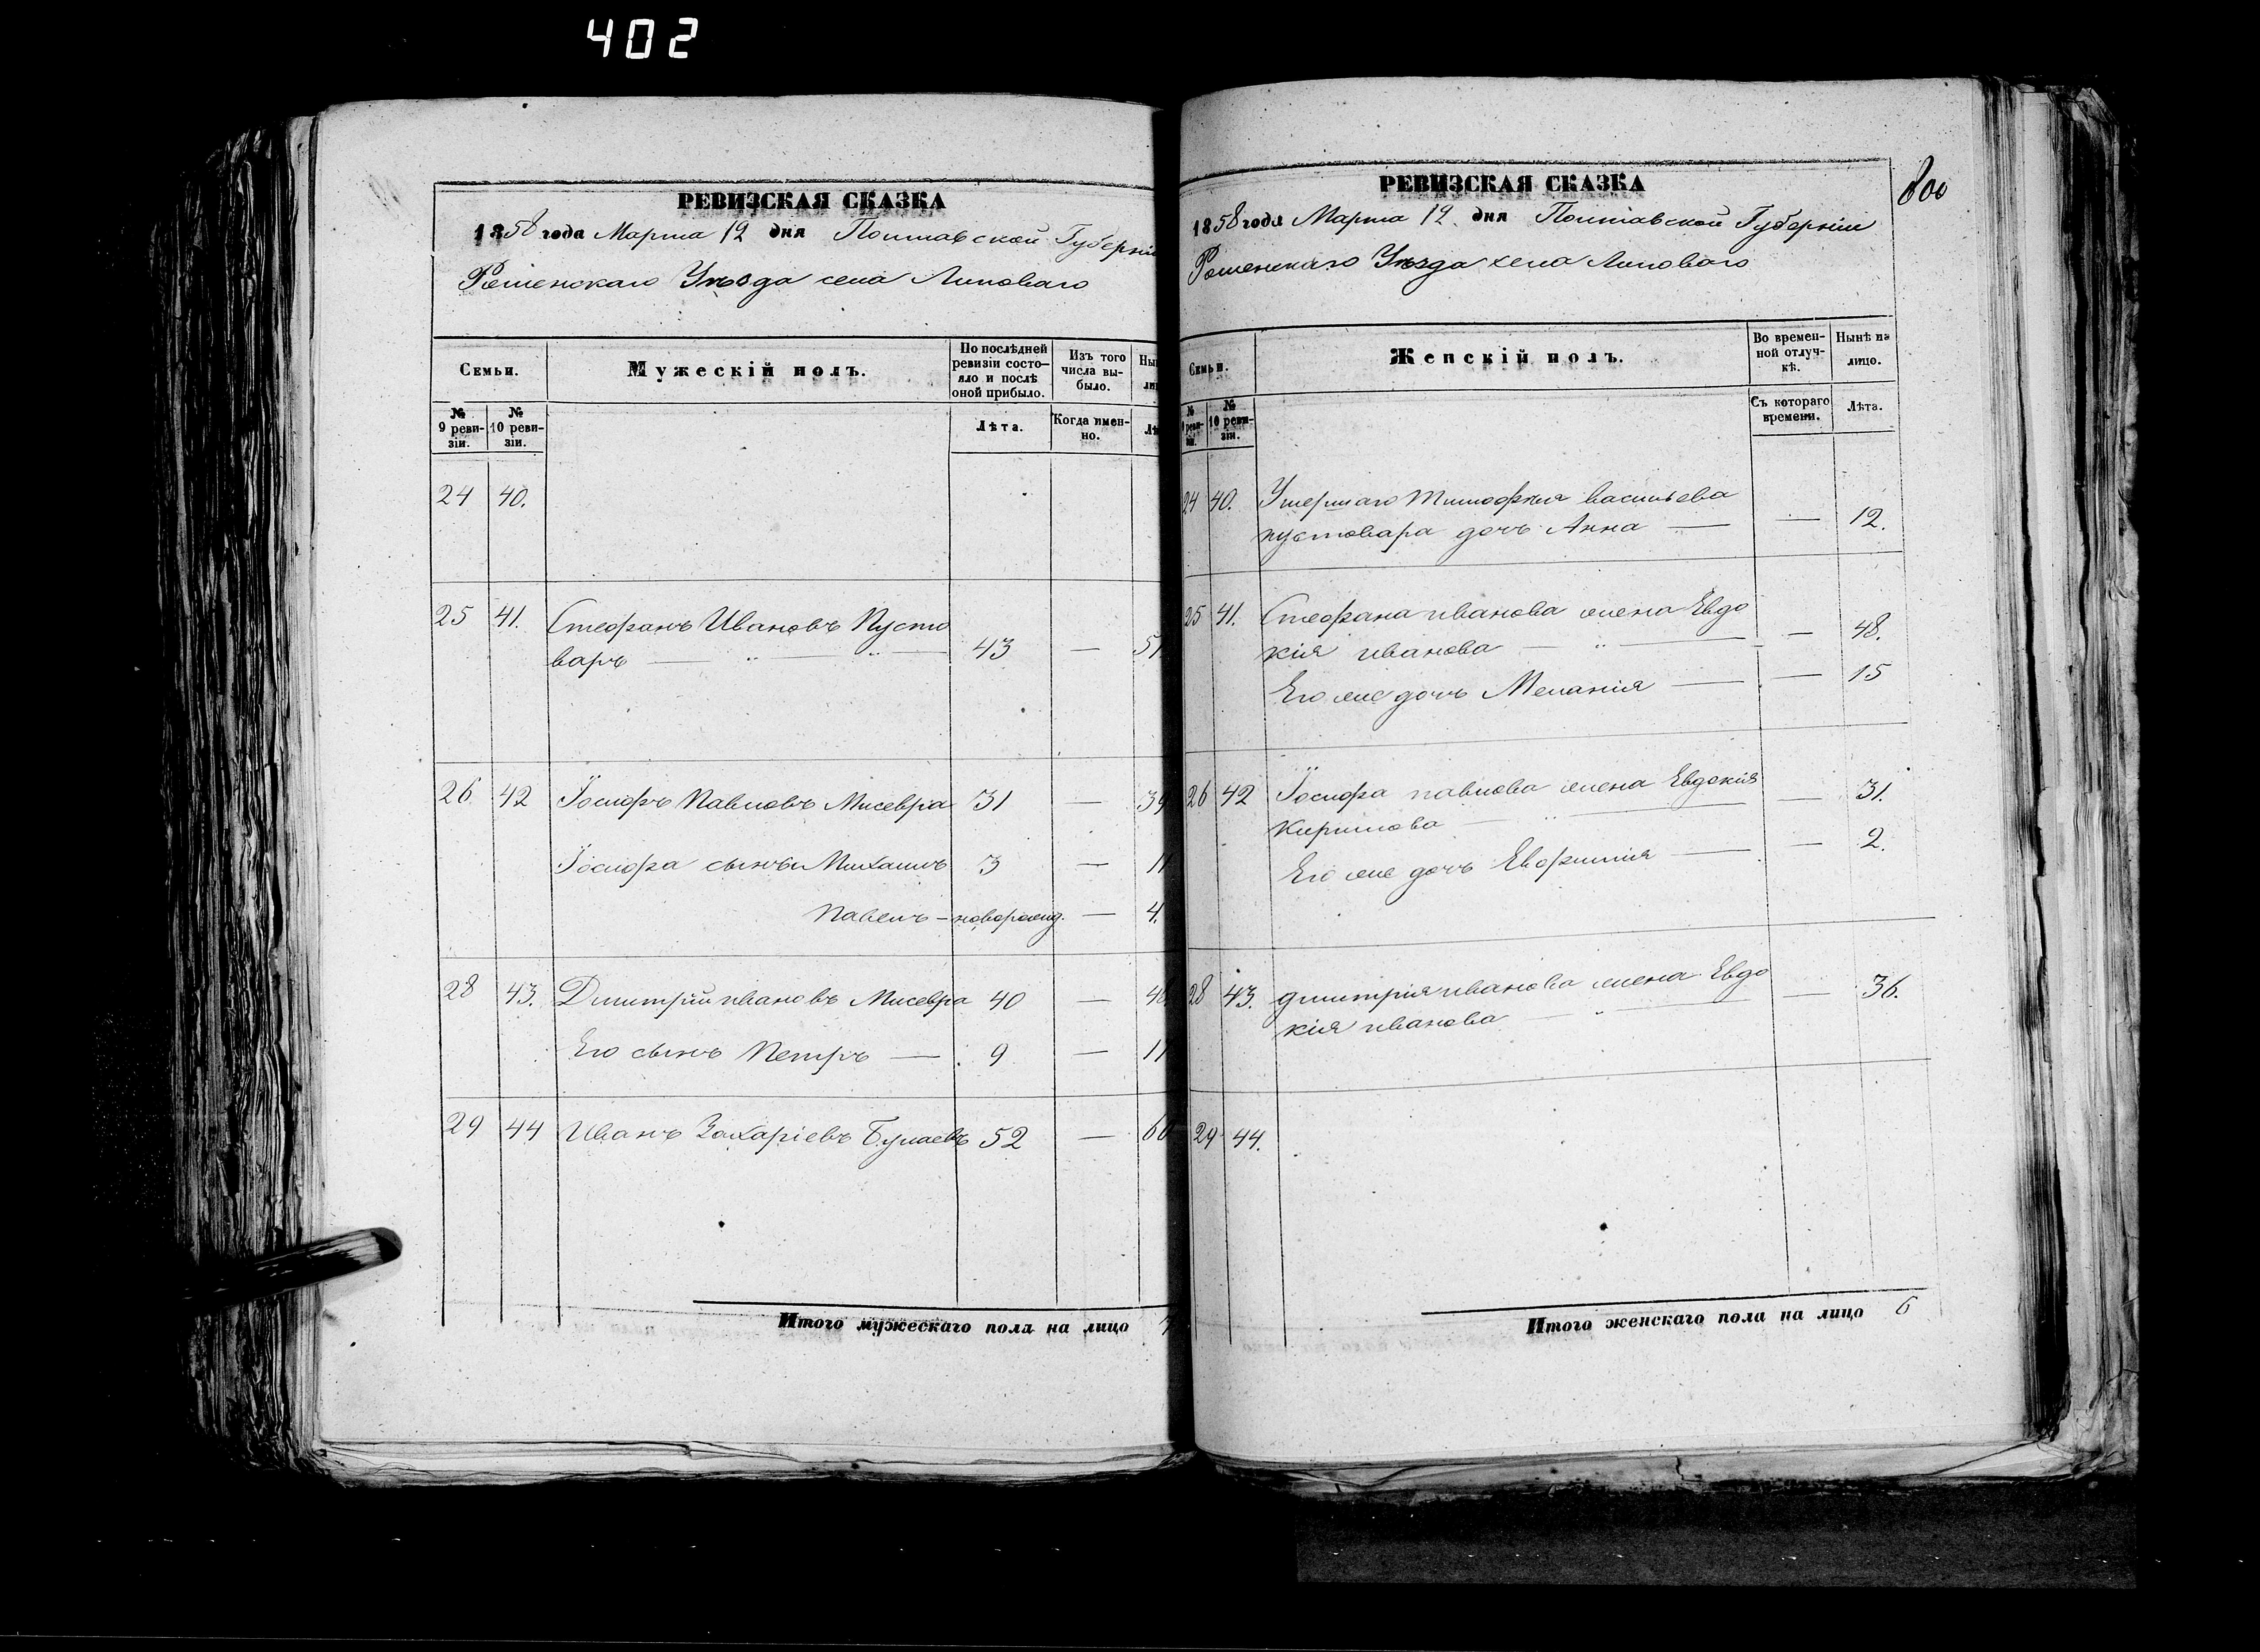 402
РЕВИЗСКАЯ СКАЗКА
1858 года Марта 12 дня Полтавской Губерніи
Роменскаго Уѣзда села Липоваго
Семьи.
Мужескій полъ.
По послѣдней ревизіи состо-
яло и послѣ
оной прибыло.
Изъ того
числа вы-
было.
№
9 реви-
зіи.
№
10 реви-
зіи.
Лѣта.
Когда имен-
но.
24 40.
25 41. Стефанъ Ивановъ Пусто
варъ — " — " — 43 — 51
26 42 Іосифъ Павловъ Мисевра 31 — 39
Іосифа сынъи Михаилъ 3 — 11
Павелъ – новорожд. — 4.
28 43. Дмитрій ивановъ Мисевра 40 — 48
Его сынъ Петръ — 9 — 17
29 44 Иванъ Захаріевъ Булаевъ 52 — 60
Итого мужескаго пола на лицо 7
800
РЕВИЗСКАЯ СКАЗКА
1858 года Марта 12. дня Полтавской Губерніи
Роменскаго Уѣзда села Липоваго
Семьи.
Женскій полъ.
Во времен-
ной отлуч-
кѣ.
Нынѣ на
лицо.
№
9 реви-
зіи.
№
10 реви-
зіи.
Съ котораго
времени.
Лѣта.
24 40. Умершаго Тимофѣя васильева
пустовара дочь Анна — — 12.
25 41. Стефана иванова жена Евдо
кія иванова — " — — 48.
Его же дочь Меланія — — 15
26 42 Іосифа павлова жена Евдокія
Кирилова — " — — 31.
Его же дочь Евфимія — — 2.
28 43. дмитрія иванова жена Евдо
кія иванова — " — — 36.
29 44.
Итого женскаго пола на лицо 6